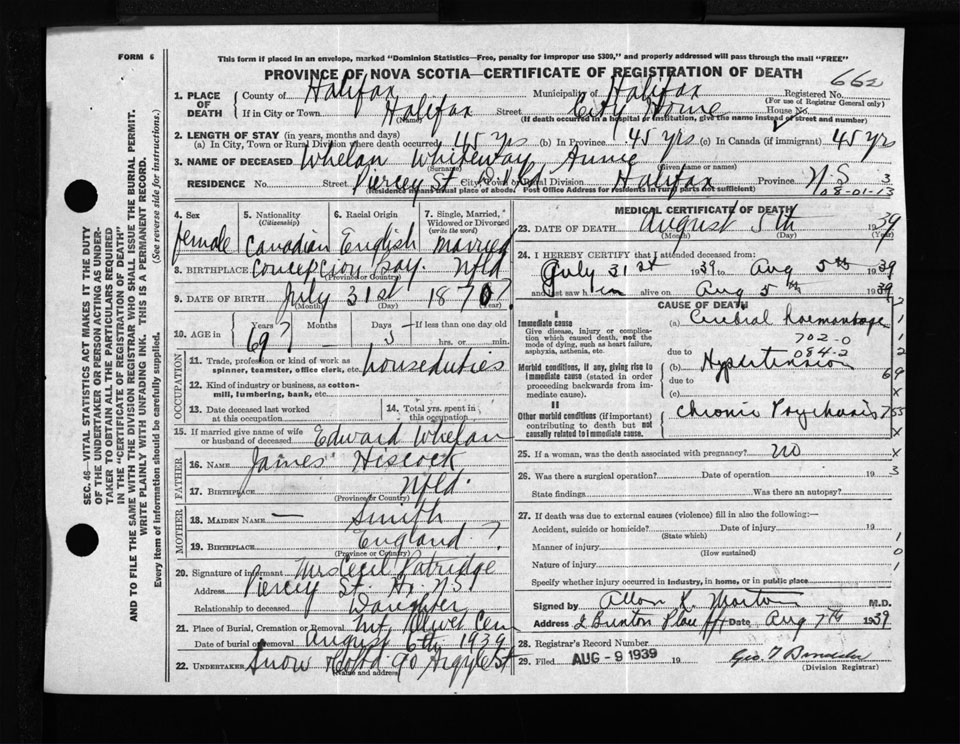 FORM 6
This form if placed in an envelope, marked "Dominion Statistics—Free, penalty for improper use $300," and properly addressed will pass through the mail "FREE"
PROVINCE OF NOVA SCOTIA—CERTIFICATE OF REGISTRATION OF DEATH
662
1. PLACE OF DEATH County of Halifax Municipality of Halifax Registered No. (For use of Registrar General only)
If in City or Town Halifax (Name) Street City Home House No.
(If death occurred in a hospital or institution, give the name instead of street and number)
2. LENGTH OF STAY (in years, months and days)
(a) In City, Town or Rural Division where death occurred 45 yrs (b) In Province 45 yrs (c) In Canada (if immigrant) 45 yrs
3. NAME OF DECEASED Whelan Whiteway, Annie
(Surname) (Given name or names)
RESIDENCE No. Street Piercey St City, Town or Rural Division Halifax Province N.S. 3
(Residence means usual place of abode. Post Office Address for residents in rural parts not sufficient) 08-01-13
4. Sex female
5. Nationality (Citizenship) Canadian
6. Racial Origin English
7. Single, Married, Widowed or Divorced (write the word) married
8. BIRTHPLACE Concepcion Bay. Nfld
(Province or Country)
9. DATE OF BIRTH July 31st 1870?
(Month) (Day) (Year)
10. AGE in Years 69? Months — Days 5 If less than one day old hrs. or min.
OCCUPATION
11. Trade, profession or kind of work as spinner, teamster, office clerk, etc. house duties
12. Kind of industry or business, as cotton-mill, lumbering, bank, etc.
13. Date deceased last worked at this occupation
14. Total yrs. spent in this occupation
15. If married give name of wife or husband of deceased Edward Whelan
FATHER
16. NAME James Hiscock
17. BIRTHPLACE Nfld.
(Province or Country)
MOTHER
18. MAIDEN NAME — Smith
19. BIRTHPLACE England ?
(Province or Country)
20. Signature of informant Mrs Cecil Patridge
Address Piercey St. Hx. N.S.
Relationship to deceased Daughter
21. Place of Burial, Cremation or Removal Mt. Olivet Cem
Date of burial or removal August 6th 1939
22. UNDERTAKER Snow & Co Ltd 90 Argyle St
(Name and address)
MEDICAL CERTIFICATE OF DEATH
23. DATE OF DEATH August 5th 1939
(Month) (Day) (Year)
24. I HEREBY CERTIFY that I attended deceased from:
July 31st 1939 to Aug 5th 1939
and last saw h er alive on Aug 5th 1939
CAUSE OF DEATH
I
Immediate cause
Give disease, injury or complication which caused death, not the mode of dying, such as heart failure, asphyxia, asthenia, etc.
(a) Cerebral haemorrhage
702-0
due to 084-2
Morbid conditions, if any, giving rise to immediate cause (stated in order proceeding backwards from immediate cause).
(b) Hypertension
due to
(c)
II
Other morbid conditions (if important) contributing to death but not causally related to immediate cause.
Chronic Psychosis
25. If a woman, was the death associated with pregnancy? no
26. Was there a surgical operation? Date of operation 19
State findings Was there an autopsy?
27. If death was due to external causes (violence) fill in also the following:—
Accident, suicide or homicide? Date of injury 19
(State which)
Manner of injury
(How sustained)
Nature of injury
Specify whether injury occurred in industry, in home, or in public place
Signed by Allan R. Morton M.D.
Address 2 Brunton Place Hfx Date Aug 7th 1939
28. Registrar's Record Number
29. Filed AUG -9 1939 19
(Division Registrar)
SEC. 46—VITAL STATISTICS ACT MAKES IT THE DUTY
OF THE UNDERTAKER OR PERSON ACTING AS UNDER-
TAKER TO OBTAIN ALL THE PARTICULARS REQUIRED
IN THE "CERTIFICATE OF REGISTRATION OF DEATH"
AND TO FILE THE SAME WITH THE DIVISION REGISTRAR WHO SHALL ISSUE THE BURIAL PERMIT.
WRITE PLAINLY WITH UNFADING INK. THIS IS A PERMANENT RECORD.
Every item of Information should be carefully supplied. (See reverse side for instructions.)